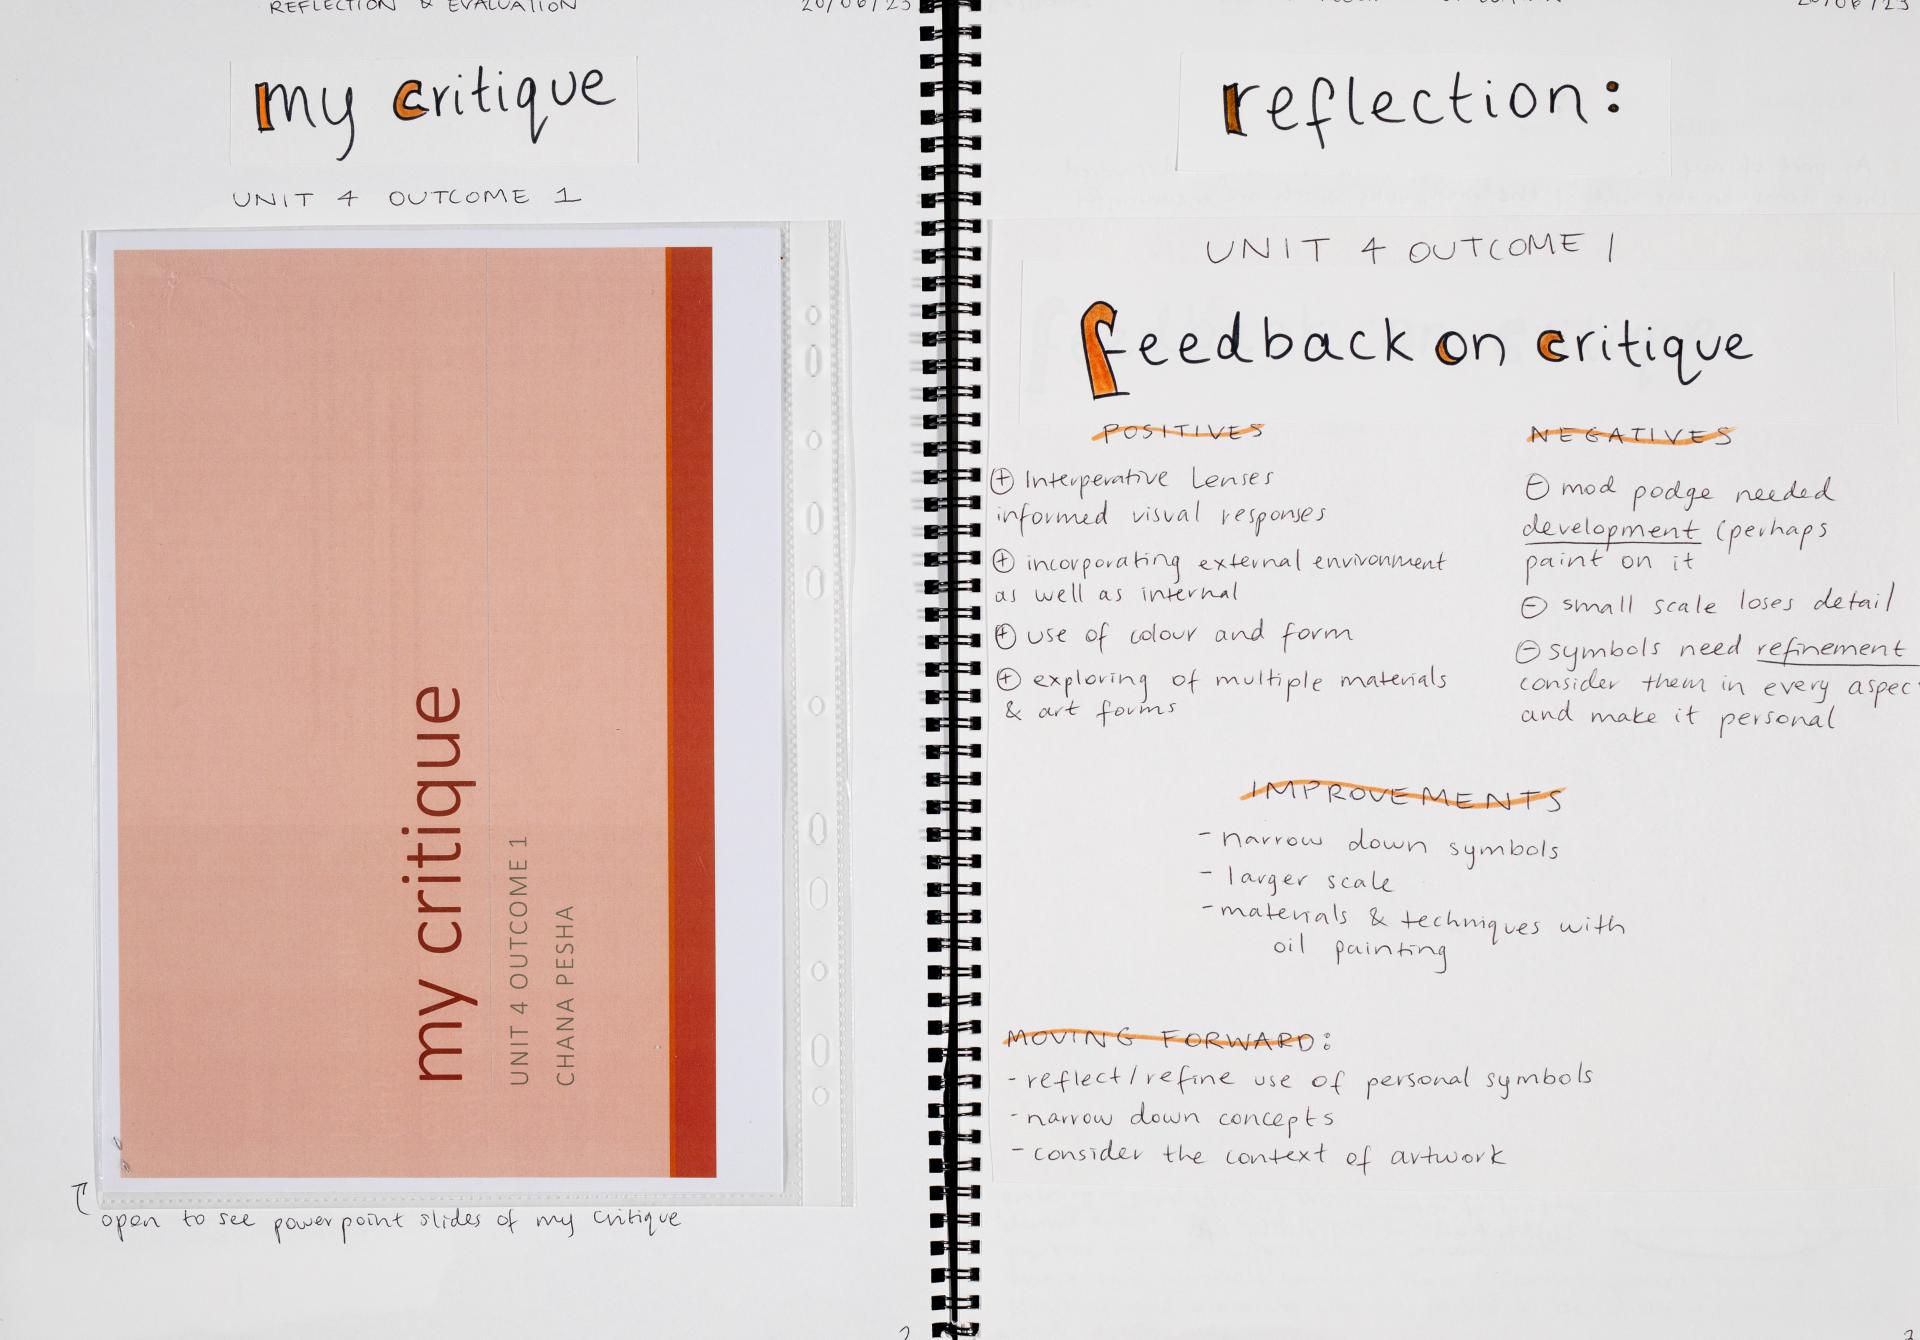 REFLECTION & EVALUATION 20/06/23
my critique
UNIT 4 OUTCOME 1
my critique
UNIT 4 OUTCOME 1
CHANA PESHA
open to see powerpoint slides of my critique
2
20/06/23
reflection:
UNIT 4 OUTCOME 1
feedback on critique
POSITIVES
+ Interperative Lenses
informed visual responses
+ incorporating external environment
as well as internal
+ use of colour and form
+ exploring of multiple materials
& art forms
NEGATIVES
- mod podge needed
development (perhaps
paint on it
- small scale loses detail
- symbols need refinement
consider them in every aspec
and make it personal
IMPROVEMENTS
- narrow down symbols
- larger scale
- materials & techniques with
oil painting
MOVING FORWARD:
- reflect/refine use of personal symbols
- narrow down concepts
- consider the context of artwork